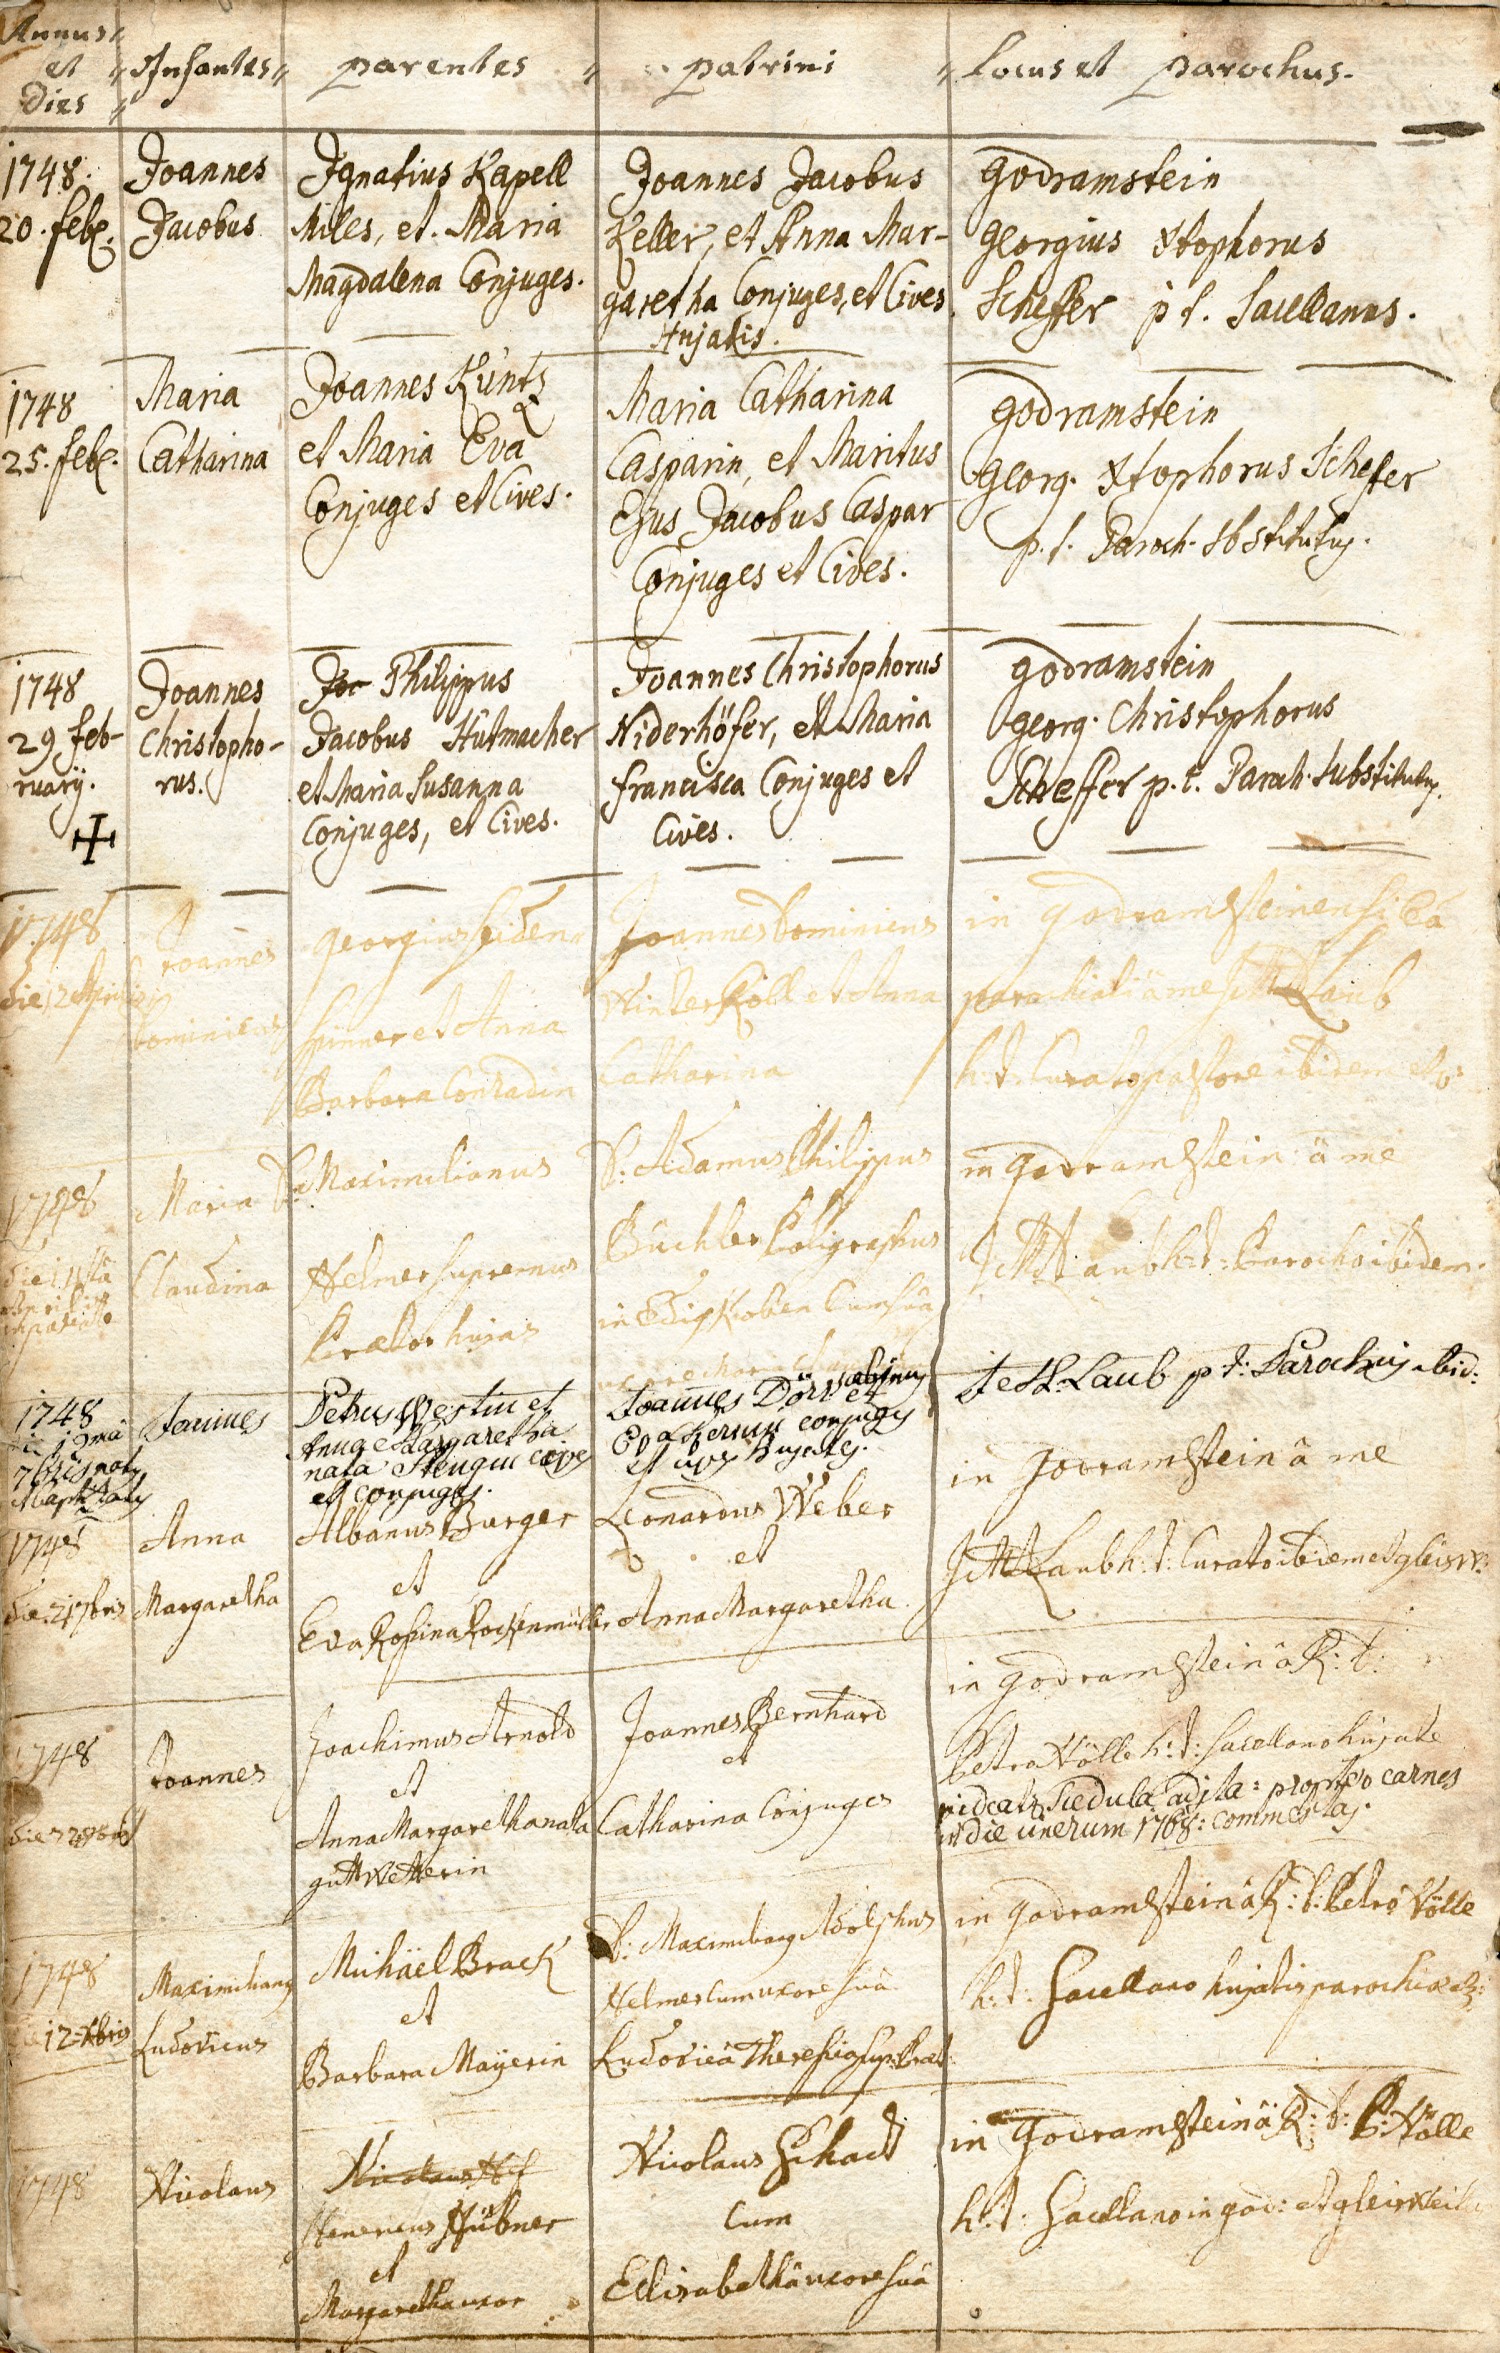 Annus et Dies
Infantes
parentes
patrini
Locus et parochus.
1748.
20. feb.
Joannes
Jacobus
Ignatius Kapell
Miles, et Maria
Magdalena Conjuges.
Joannes Jacobus
Keller, et Anna Mar-
garetha Conjuges, et Cives
Hujatis.
Godramstein
Georgius Xtophorus
Scheffer p t. Sacellanus.
1748
25. feb.
Maria
Catharina
Joannes Küntz
et Maria Eva
Conjuges et Cives.
Maria Catharina
Casparin, et Maritus
Ejus Jacobus Caspar
Conjuges et Cives.
Godramstein
Georg. Xtophorus Schefer
p. t. Paroch. sbstitutus.
1748
29 feb-
ruarÿ.
Joannes
Christopho-
rus.
Joe Philippus
Jacobus Hutmacher
et Maria Susanna
Conjuges, et Cives.
Joannes Christophorus
Niderhöfer, et Maria
francisca Conjuges et
Cives.
Godramstein
Georg. Christophorus
Scheffer p. t. Paroch. Substitutus.
1748
die 12 Aprilis
Joannes
Dominicus
Georgius Seiden
spinner et Anna
Barbara Conradin
Joannes Dominicus
Winterkoll et Anna
Catharina
in Godramsteinensi Ecc
parochiali â me J M Laub
h: t: Curato pastore ibidem
1748
Maria
Claudina
D. Maximilianus
Helmer supremus
Praetor hujas
D: Adamus Philippus
Büchler Poligraphus
in Edigkoben Cum suâ
in Godramstein â me
J M Laub h: t: Parocho ibidem.
1748
7bris
Joannes
Petrus Westin et
Anna Margaretha
nata Stengin cives
et conjuges.
Joannes Dörr
Eva conjuges
et cives hujates.
J M Laub p t: Parochus ibid:
1748
die 21 7bris
Anna
Margaretha
Albanus Burger
et
Eva Rosina Rockenmüller
Leonardus Weber
et
Anna Margaretha.
in Godramstein â me
J M Laub h: t: Curato ibidem et gleisw:
1748
Joannes
Joachimus Arnold
et
Anna Margaretha nata
guttwetterin
Joannes Bernhard
et
Catharina Conjuges
in Godramstein â R: D:
Petro Völle h: t: Sacellano hujate
videatur scedula adjta: propter carnes
in die cinerum 1768: commestas.
1748
12 Xbris
Maximilianus
Ludovicus
Michäel Brack
et
Barbara Maÿerin
D: Maximilianus Adolphus
Helmer cum uxore suâ
Ludovicâ Theresia sup: Praet:
in Godramstein â R: D: Petro Völle
h: t: Sacellano hujatis parochiae
1748
Nicolaus
Nicolaus
Henricus Hübner
et
Margaretha uxor
Nicolaus Schadt
Cum
Ellisabethâ uxore suâ
in Godramstein â R: D: P: Völle
h: t: Sacellano in god: et gleisweil